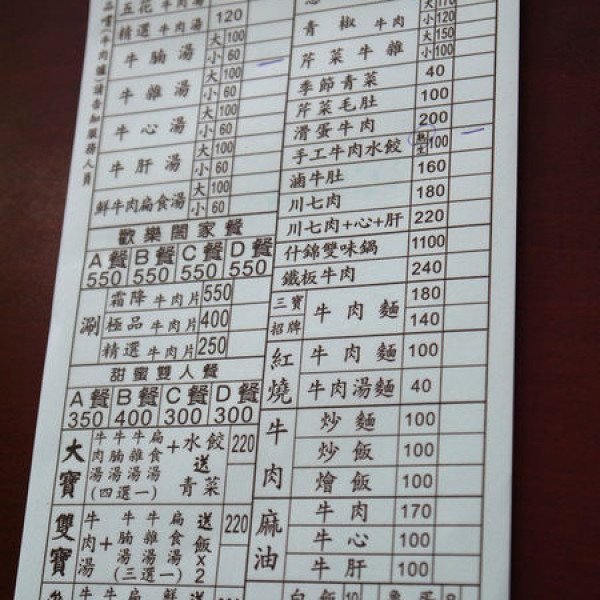 品嚐(牛肉爐)請告知服務人員
五花牛肉湯
精選牛肉湯 120
牛腩湯 大100 小60
牛雜湯 大100 小60
牛心湯 大100 小60
牛肝湯 大100 小60
鮮牛肉扁食湯 大100 小60
歡樂闔家餐
A餐 B餐 C餐 D餐
550 550 550 550
涮
霜降牛肉片 550
極品牛肉片 400
精選牛肉片 250
甜蜜雙人餐
A餐 B餐 C餐 D餐
350 400 300 300
大寶 牛肉湯 牛腩湯 牛雜湯 扁食湯 (四選一) +水餃 送青菜 220
雙寶 牛肉湯 + 牛腩湯 牛雜湯 扁食湯 (三選一) 送飯X2 220
大170
青椒牛肉 小120
芹菜牛雜 大150 小100
季節青菜 40
芹菜毛肚 100
滑蛋牛肉 200
手工牛肉水餃 熟 生 100
滷牛肚 160
川七肉 180
川七肉+心+肝 220
什錦雙味鍋 1100
鐵板牛肉 240
三寶 招牌 牛肉麵 180 140
紅燒
牛肉麵 100
牛肉湯麵 40
牛肉
炒麵 100
炒飯 100
燴飯 100
麻油
牛肉 170
牛心 100
牛肝 100
白飯 10